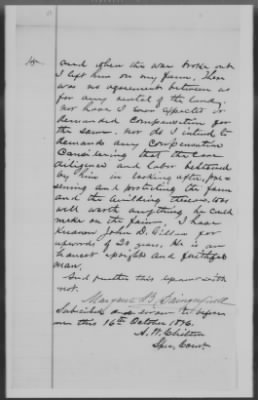 and when the war broke out
I left him on my farm. There
was no agreement between us
for any rental of the land,
nor have I ever expected or
demanded compensation for
the same. nor do I intend to
demand any compensation
Considering that the care
diligence and labor bestowed
by him in looking after, pre-
serving and protecting the farm
and the building thereon, was
well worth anything he could
make on the farm. I have
known John D. Gillem for
upwards of 20 years. He is an
honest upright and faithful
man.
And further this deponent saith
not.
Margaret B.
Subscribed and sworn to before
me this 16th October 1876.
A. W. Chilton
Spec. Comr